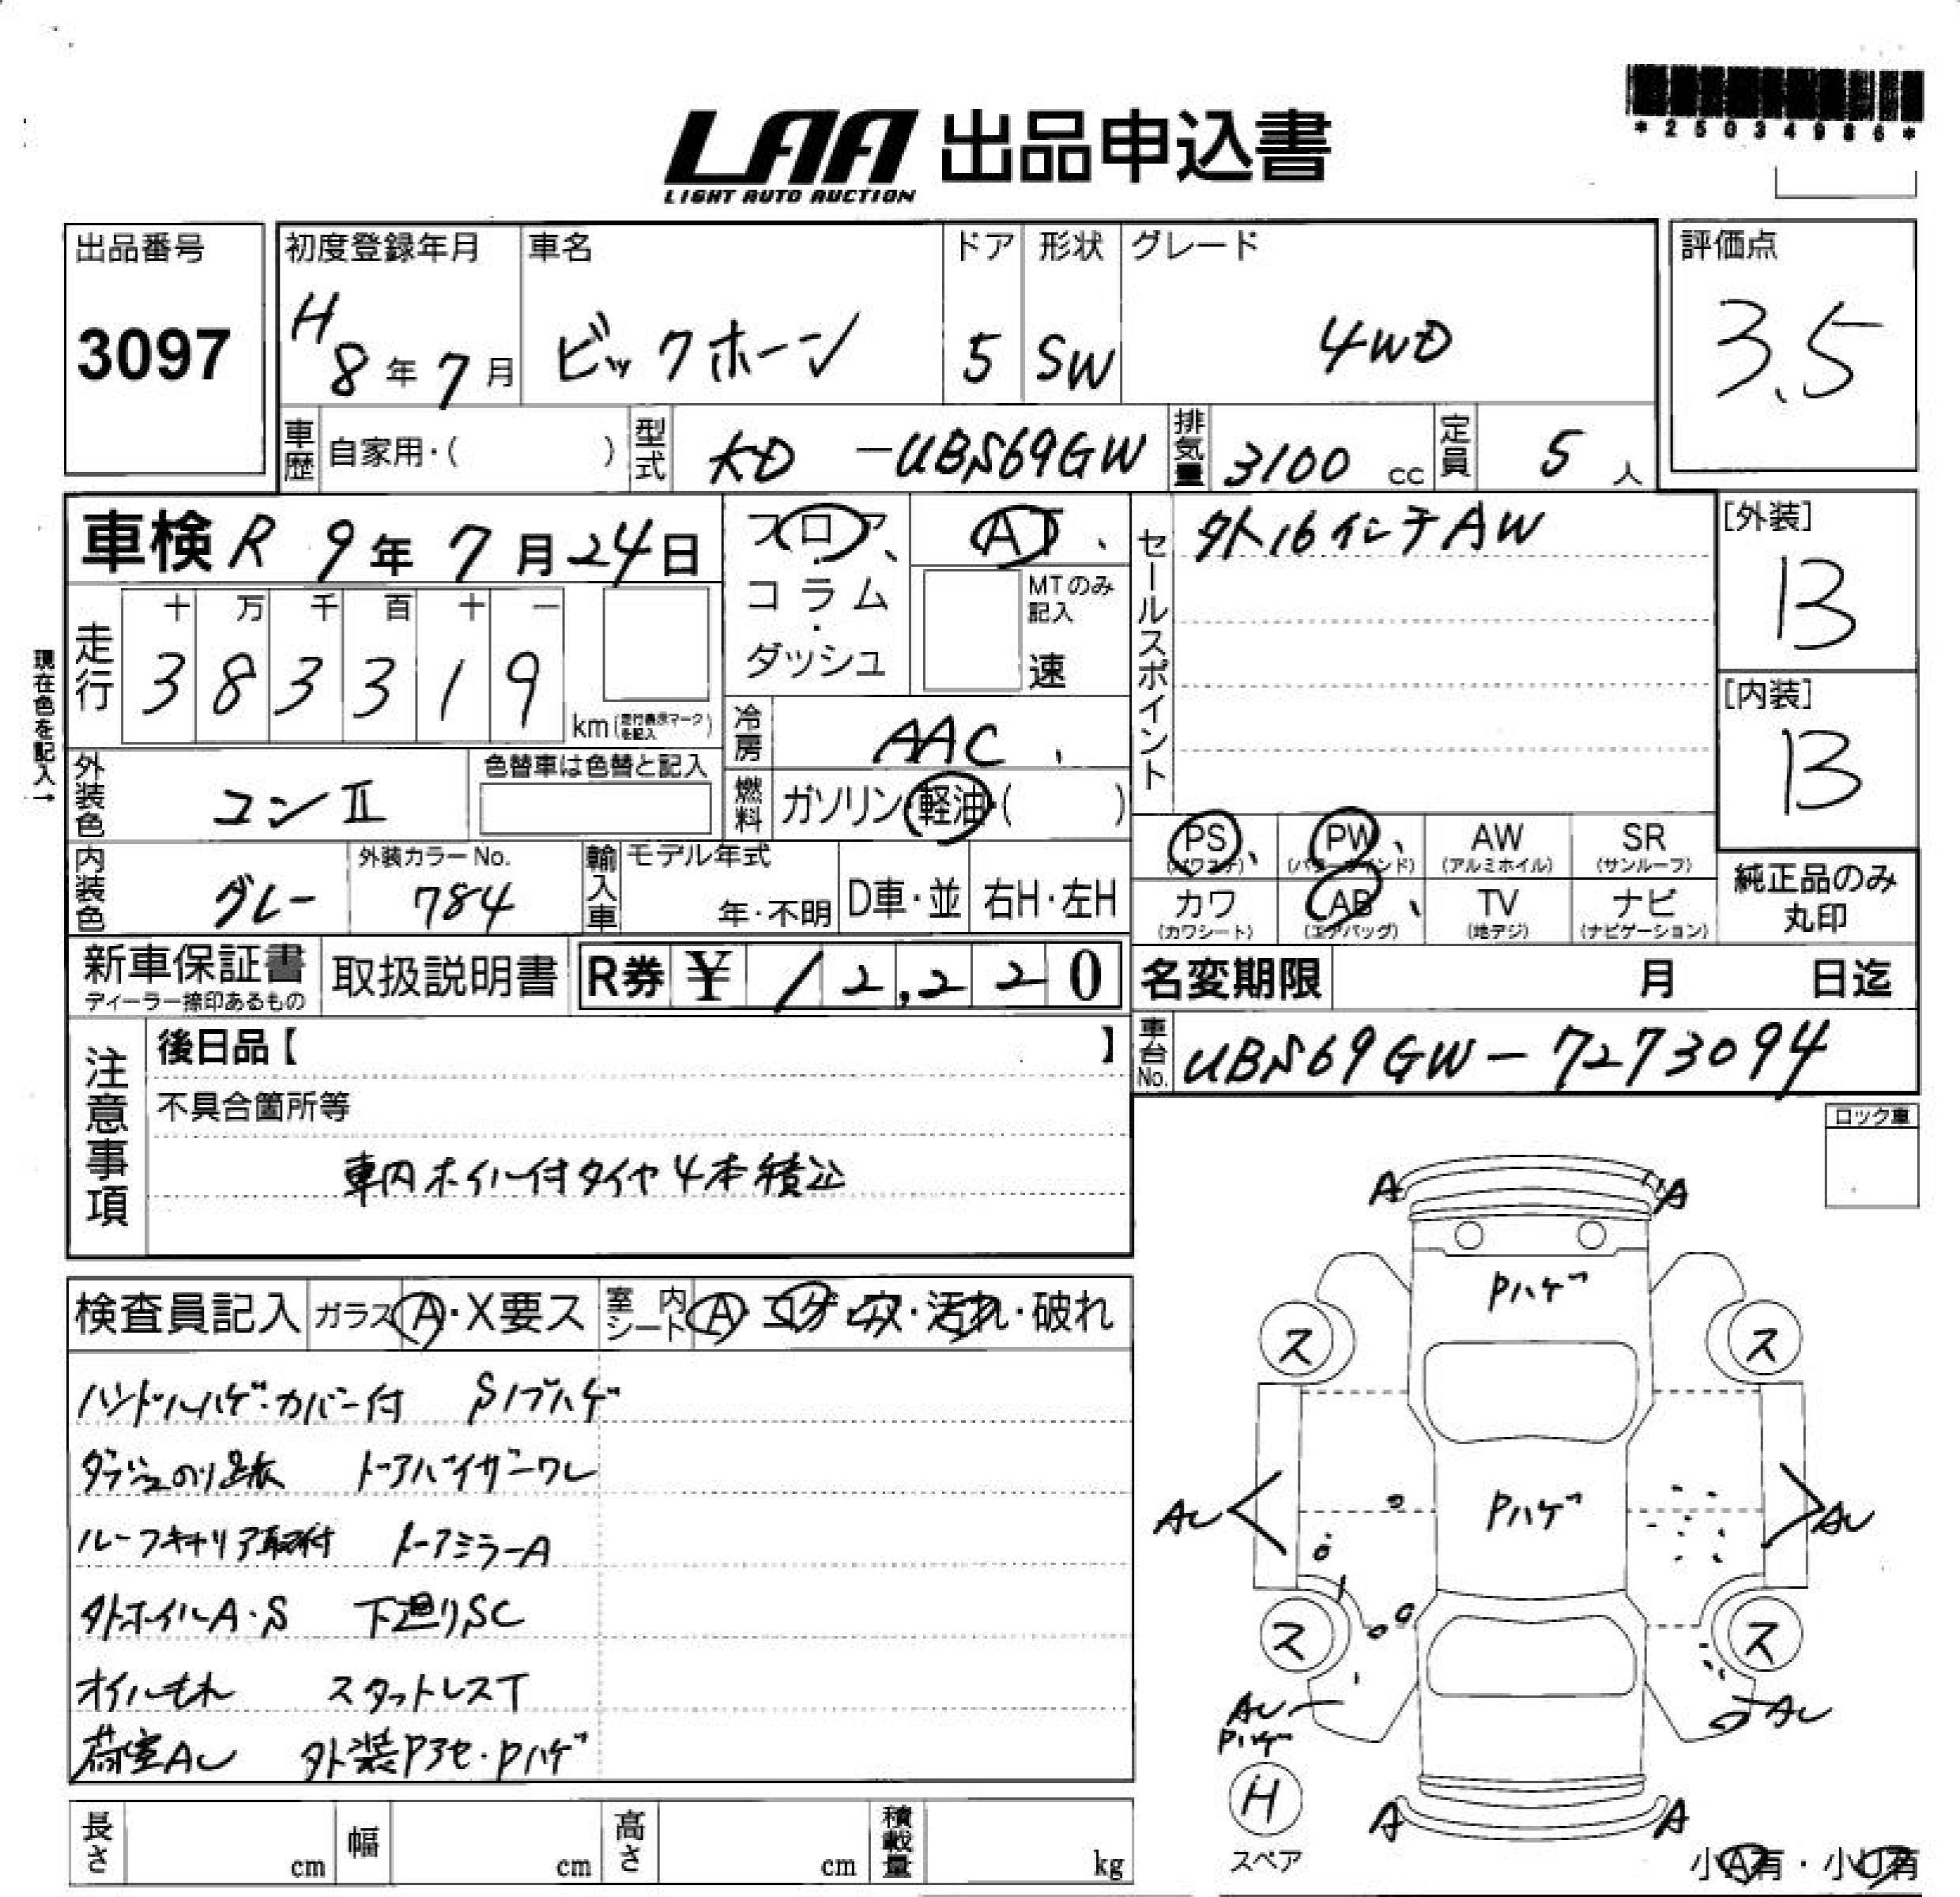 *25034986*
LAA 出品申込書
LIGHT AUTO AUCTION
出品番号 3097
初度登録年月 H 8年 7月
車名 ビックホーン
ドア 5
形状 SW
グレード 4WD
評価点 3.5
車歴 自家用・( )
型式 KD -UBS69GW
排気量 3100 cc
定員 5 人
車検 R 9年 7月 24日
フロア、・コラム・ダッシュ
AT、
MTのみ記入 速
セールスポイント 外16インチAW
[外装] B
現在色を記入→
走行 十 万 千 百 十 一
3 8 3 3 1 9 km (走行表示マークを記入)
冷房 AAC、
[内装] B
外装色 コンⅡ
色替車は色替と記入
燃料 ガソリン・軽油・( )
PS、(パワステ) PW、(パワーウインド) AW (アルミホイル) SR (サンルーフ)
カワ (カワシート) AB、(エアバッグ) TV (地デジ) ナビ (ナビゲーション)
純正品のみ丸印
内装色 グレー
外装カラーNo. 784
輸入車 モデル年式 年・不明
D車・並 右H・左H
新車保証書 ディーラー捺印あるもの
取扱説明書
R券 ¥ 12,220
名変期限 月 日迄
車台No. UBS69GW-7273094
注意事項
後日品【 】
不具合箇所等
車内ホイル付タイヤ4本積込
ロック車
検査員記入 ガラス A・X要ス 室内シート A・コゲ・穴・汚れ・破れ
ハンドルハゲ・カバー付 Sノブハゲ
ダッシュのり跡 ドアバイザーワレ
ルーフキャリア取付 ドアミラーA
外ホイルA・S 下廻りSC
オイルもれ スタットレスT
荷室AU 外装Pアセ・Pハゲ
A A
Pハゲ
ス ス
AU Pハゲ AU
ス ス
AU Pハゲ AU
H スペア
A A
小A有・小U有
長さ cm 幅 cm 高さ cm 積載量 kg